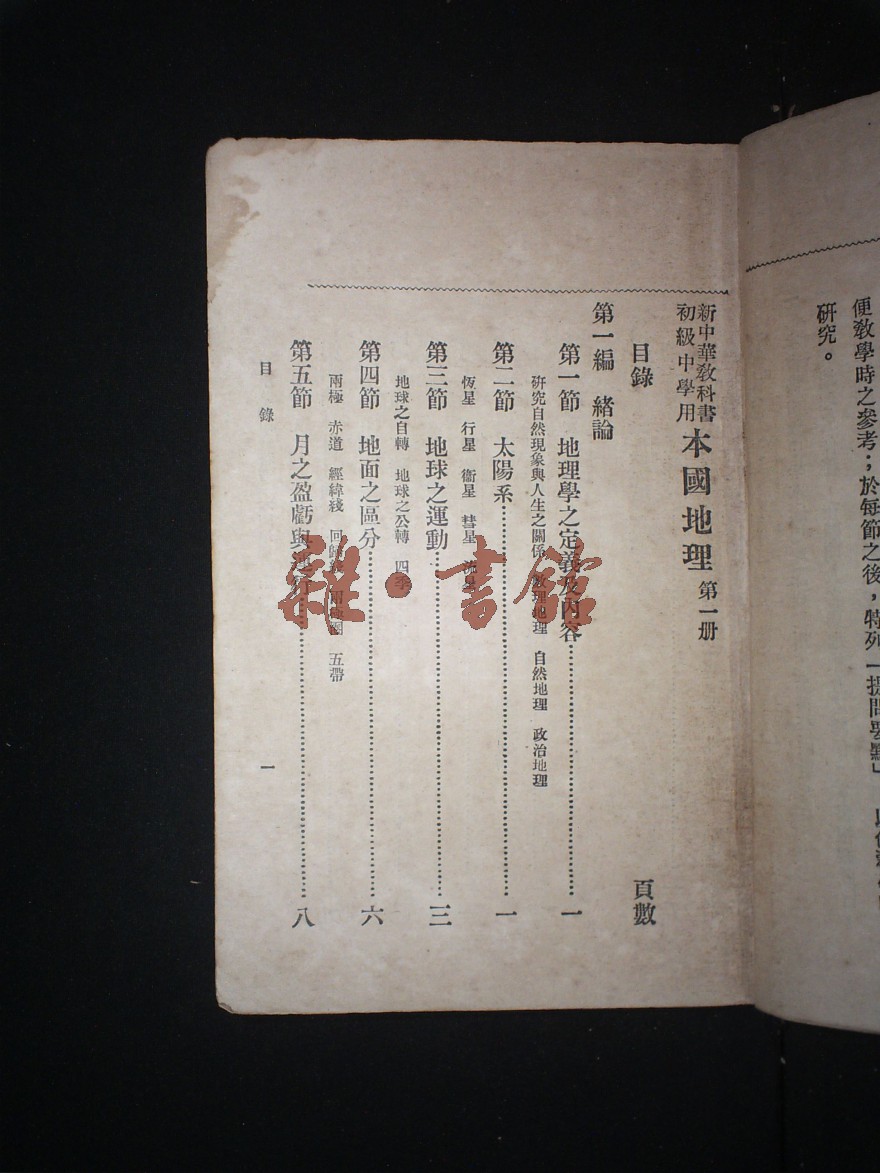 便教學時之參考；於每節之後，特列「提問要點」
研究。
新中華教科書
初級中學用
本國地理 第一册
目錄 頁數
第一編 緒論
第一節 地理學之定義及內容 一
研究自然現象與人生之關係 數理地理 自然地理 政治地理
第二節 太陽系 一
恆星 行星 衞星 彗星 流星
第三節 地球之運動 三
地球之自轉 地球之公轉 四季
第四節 地面之區分 六
兩極 赤道 經緯綫 回歸 五帶
第五節 月之盈虧與 八
目錄 一
雜·書館